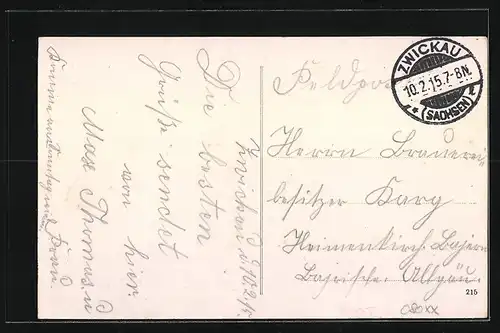 Zwickau d 10.2.15.
Die besten
Grüße sendet
von hier
Max Thomas u
Frau.
Feldpost
ZWICKAU
10.2.15.7-8N.
* (SACHSEN) t
Herrn Brauerei-
besitzer Karg
Heimenkirch. Bajern
Bajrische. Allgäu.
215